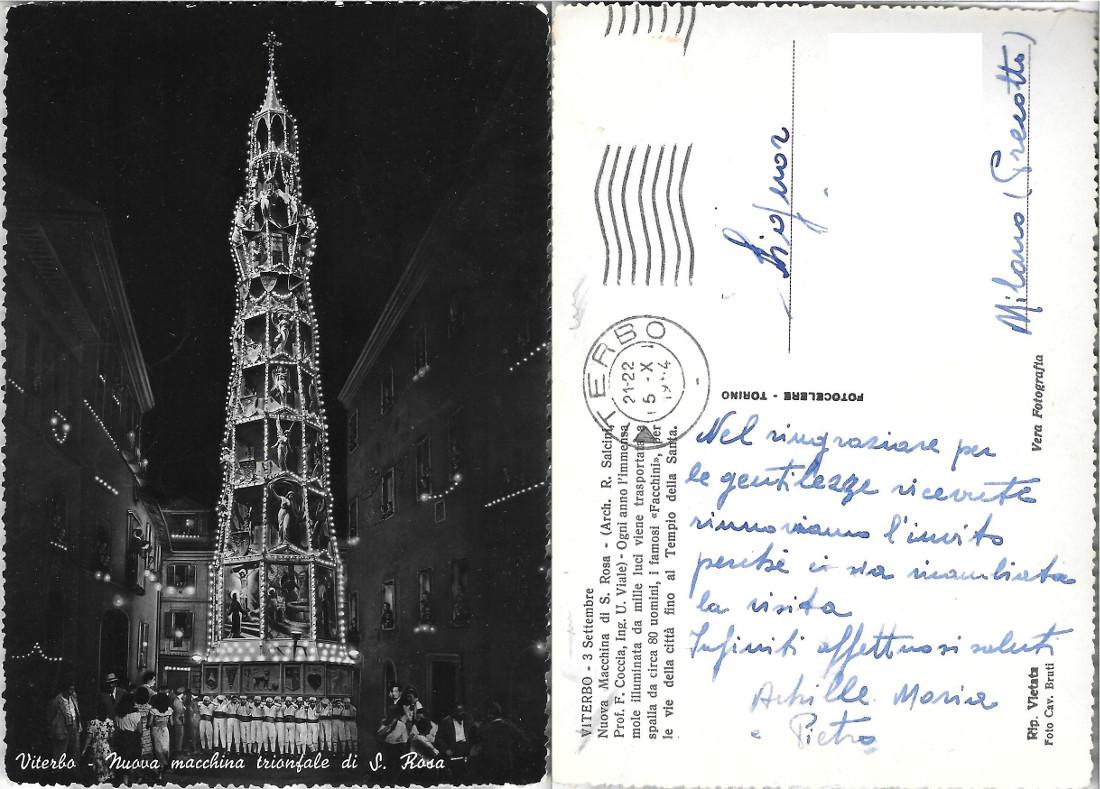 Viterbo - Nuova macchina trionfale di S. Rosa
VITERBO - 3 Settembre
Nuova Macchina di S. Rosa - (Arch. R. Salcini,
Prof. F. Coccia, Ing. U. Viale) - Ogni anno l'immensa
mole illuminata da mille luci viene trasportata a
spalla da circa 80 uomini, i famosi «Facchini», per
le vie della città fino al Tempio della Santa.
TERBO
21-22
5 - X
FOTOCELERE - TORINO
Signor
Milano (Precotto)
Nel ringraziare per
le gentilezze ricevute
rinnoviamo l'invito
perché ci sia ricambiata
la visita
Infiniti affettuosi saluti
Achille Maria
e Pietro
Rip. Vietata
Foto Cav. Bruti
Vera Fotografia